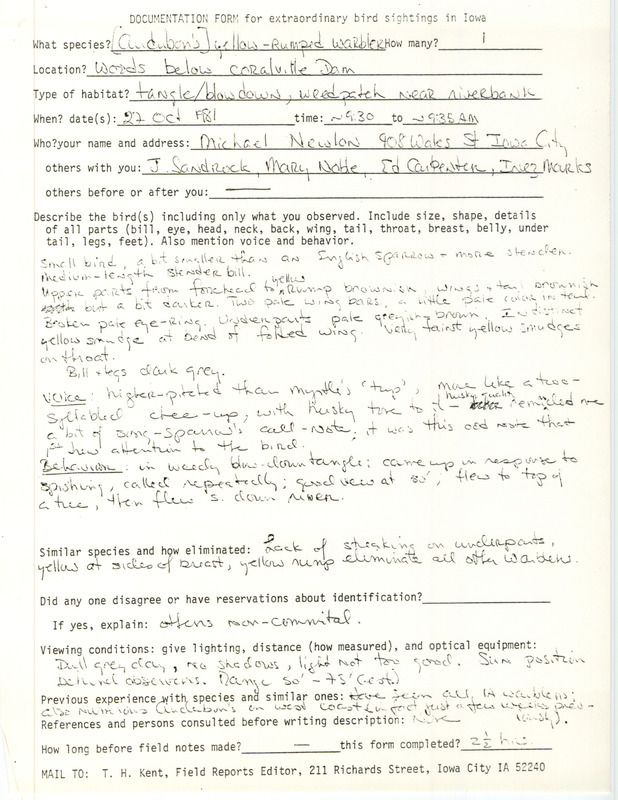 DOCUMENTATION FORM for extraordinary bird sightings in Iowa
What species? [Audubon's] yellow-Rumped Warbler How many? 1
Location? Woods below Coralville Dam
Type of habitat? tangle/blowdown, weedpatch near riverbank
When? date(s): 27 Oct 1981 time: ~9:30 to ~9:35 AM
Who? your name and address: Michael Newlon 908 Wales St Iowa City
others with you: J. Sandrock, Mary Noble, Ed Carpenter, Inez Marks
others before or after you: ——
Describe the bird(s) including only what you observed. Include size, shape, details
of all parts (bill, eye, head, neck, back, wing, tail, throat, breast, belly, under
tail, legs, feet). Also mention voice and behavior.
Small bird, a bit smaller than an English sparrow - more slender.
Medium-length slender bill.
Upper parts from forehead to yellow Rump brownish, wings + tail brownish
but a bit darker. Two pale wing bars, a little pale color in tail.
Broken pale eye-ring. Underparts pale greyish-brown. Indistinct
yellow smudge at bend of folded wing. Very faint yellow smudges
on throat.
Bill + legs dark grey.
Voice: higher-pitched than myrtle's "tup", more like a two-
syllabled chee-up, with husky tone to it - husky quality reminded me
a bit of song-sparrow's call-note; it was this odd note that
1st drew attention to the bird.
Behavior: in weedy blow-down tangle; came up in response to
spishing, called repeatedly; good view at 50', flew to top of
a tree, then flew S. down river.
Similar species and how eliminated: Lack of streaking on underparts,
yellow at sides of breast, yellow rump eliminate all other warblers.
Did any one disagree or have reservations about identification?
If yes, explain: others non-commital.
Viewing conditions: give lighting, distance (how measured), and optical equipment:
Dull grey day, no shadows, light not too good. Sun position
behind observers. Range 50' - 75' (est)
Previous experience with species and similar ones: have seen all IA warblers;
also numerous Audubon's on west coast, in fact just a few weeks prev-
References and persons consulted before writing description: None (iously).
How long before field notes made? — this form completed? 2½ hrs.
MAIL TO: T. H. Kent, Field Reports Editor, 211 Richards Street, Iowa City IA 52240